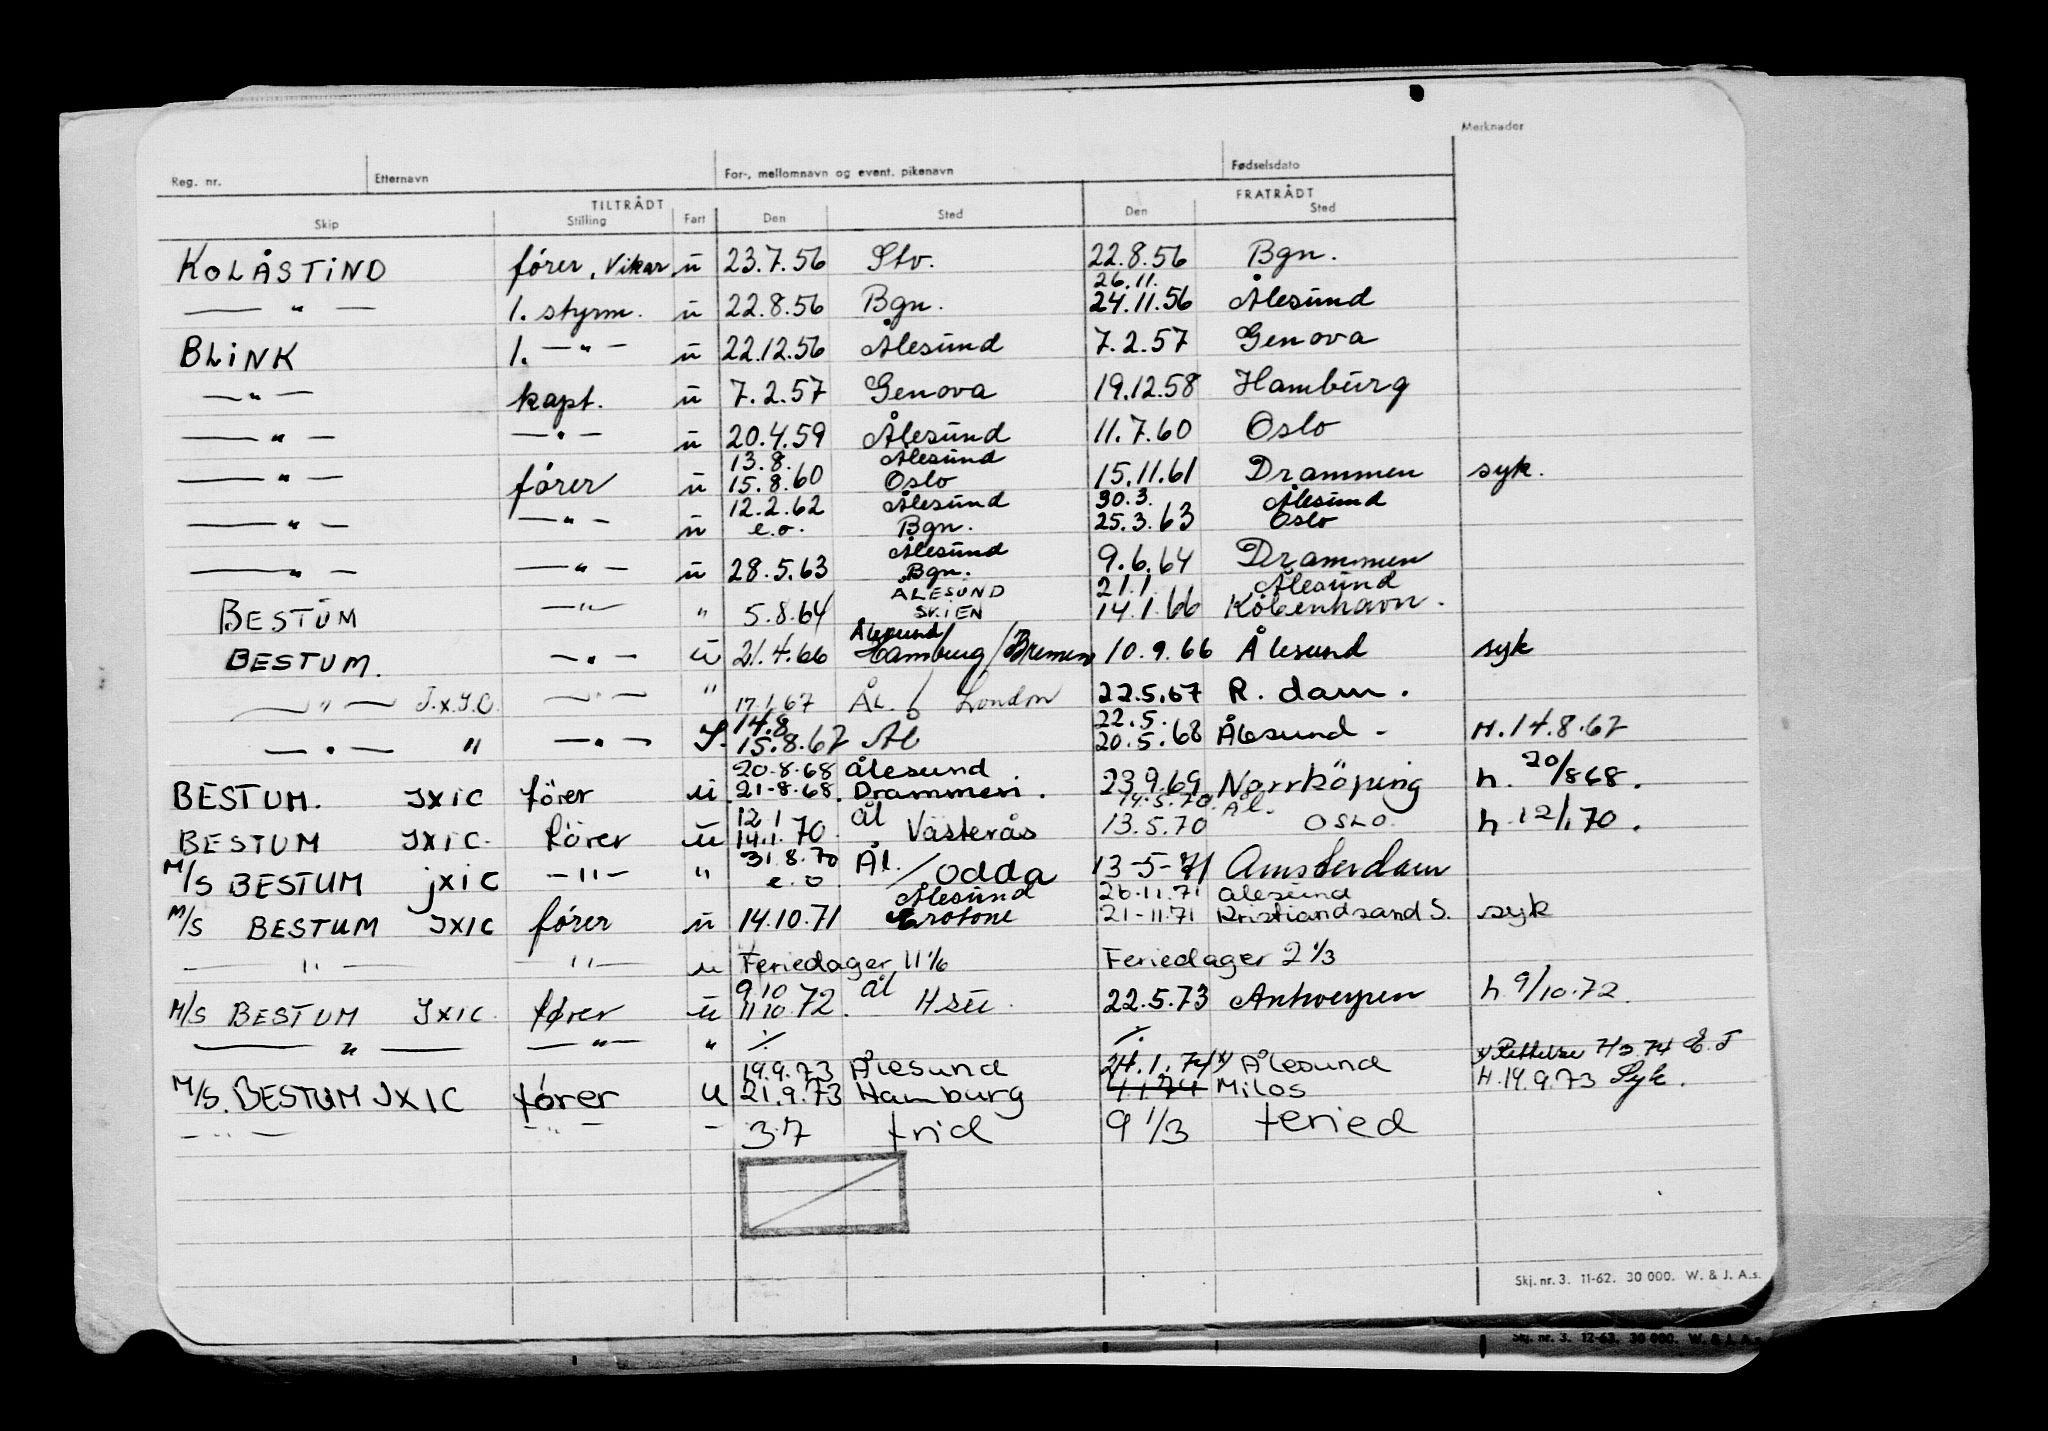 Merknader
Reg. nr. Etternavn For-, mellomnavn og event. pikenavn Fødselsdato
TILTRÅDT FRATRÅDT
Skip Stilling Fart Den Sted Den Sted
KOLÅSTIND fører, vikar u 23.7.56 Stv. 22.8.56 Bgn.
26.11.
— " — 1. styrm. u 22.8.56 Bgn. 24.11.56 Ålesund
BLINK 1. — " — u 22.12.56 Ålesund 7.2.57 Genova
— " — kapt. u 7.2.57 Genova 19.12.58 Hamburg
— " — — " — u 20.4.59 Ålesund 11.7.60 Oslo
13.8. Ålesund
— " — fører u 15.8.60 Oslo 15.11.61 Drammen syk.
12.2.62 Ålesund 30.3. Ålesund
— " — — " — u e.o. Bgn. 25.3.63 Oslo
Ålesund
— " — — " — u 28.5.63 Bgn. 9.6.64 Drammen
ÅLESUND 21.1. Ålesund
BESTUM — " — " 5.8.64 SKIEN 14.1.66 København.
Ålesund/
BESTUM. — " — u 21.4.66 Hamburg/Bremen 10.9.66 Ålesund syk
— " — J.X.I.C. — " — " 17.1.67 ÅL. / London 22.5.67 R. dam.
14.8 22.5.
— " — " — " — S. 15.8.67 Ål 20.5.68 Ålesund - H. 14.8.67
20.8.68 Ålesund
BESTUM. JXIC fører u 21-8.68. Drammen. 23.9.69 Norrköping h. 20/8 68.
12.1 ål 14.5.70. Ål.
BESTUM JXIC. fører u 14.1.70. Västerås 13.5.70 OSLO h 12/1 70.
31.8.70 Ål.
M/S BESTUM jXIC — " — " e.o / Odda 13-5-71 Amsterdam
Ålesund 26.11.71 Ålesund
M/S BESTUM JXIC fører u 14.10.71 Crotone 21-11.71 Kristiandsand S. syk
— " — — " — u Feriedager 11 1/6 Feriedager 2 1/3
9.10 ål
M/S BESTUM JXIC. fører u 11.10.72. 22.5.73 Antwerpen h. 9/10.72.
— " — — " — " ./. ./.
19.9.73 Ålesund 24.1.74 x) Ålesund x) Rettelse 7/3.74 E.T
M/S. BESTUM JXIC fører u 21.9.73 Hamburg 4.1.74 Milos H. 19.9.73 Syk.
— " — — " — - 37 frid 9 1/3 feried
Skj. nr. 3. 11-62. 30 000. W. & J. A.s.
Skj. nr. 3. 12-63. 30 000. W. & J. A.s.